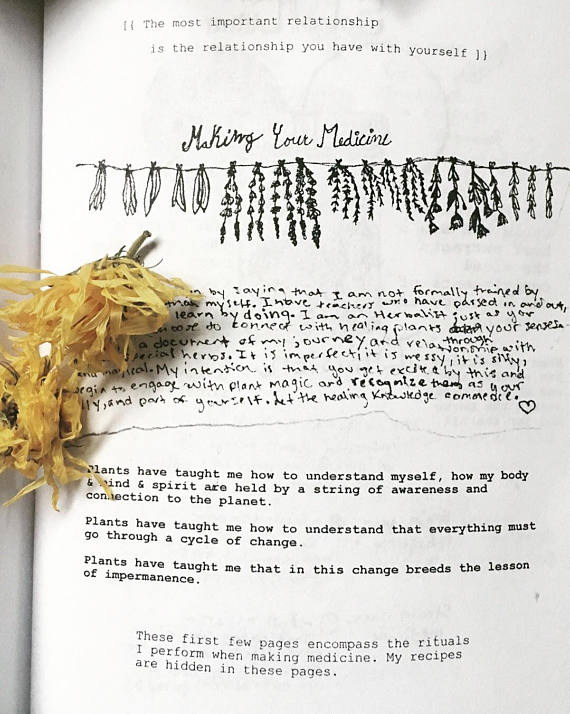 [{ The most important relationship
is the relationship you have with yourself ]}
Making Your Medicine
by saying that I am not formally trained by
than myself. I have teachers who have passed in and out,
learn by doing. I am an Herbalist just as you
to connect with healing plants your senses
a document of my journey and relationship with through
special herbs. It is imperfect, it is messy, it is silly,
magical. My intention is that you get excited by this and
begin to engage with plant magic and recognize them as your
ly, and part of yourself. Let the healing knowledge commence.
Plants have taught me how to understand myself, how my body
& mind & spirit are held by a string of awareness and
connection to the planet.
Plants have taught me how to understand that everything must
go through a cycle of change.
Plants have taught me that in this change breeds the lesson
of impermanence.
These first few pages encompass the rituals
I perform when making medicine. My recipes
are hidden in these pages.